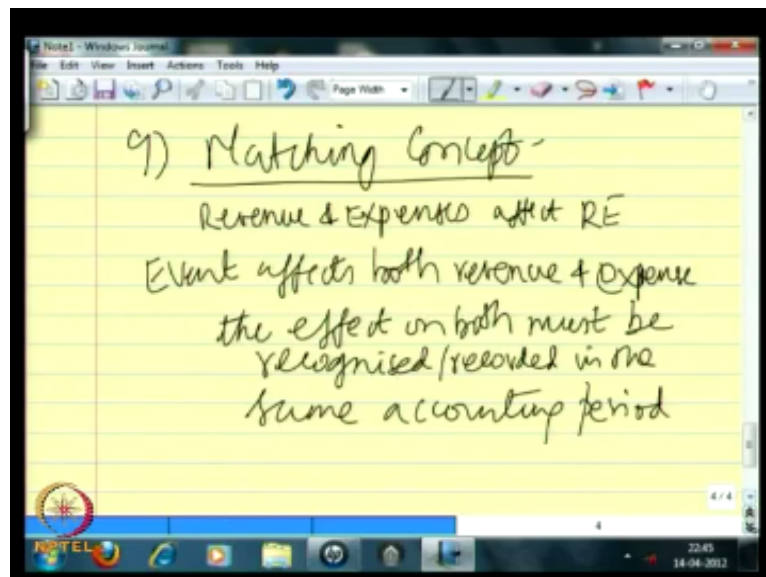 Note1 - Windows Journal
File Edit View Insert Actions Tools Help
Page Width
9) Matching Concept-
Revenue & Expenses affect RE
Event affects both revenue & expense
the effect on both must be
recognised/recorded in the
same accounting period
4/4
4
NPTEL
22:45
14-04-2012